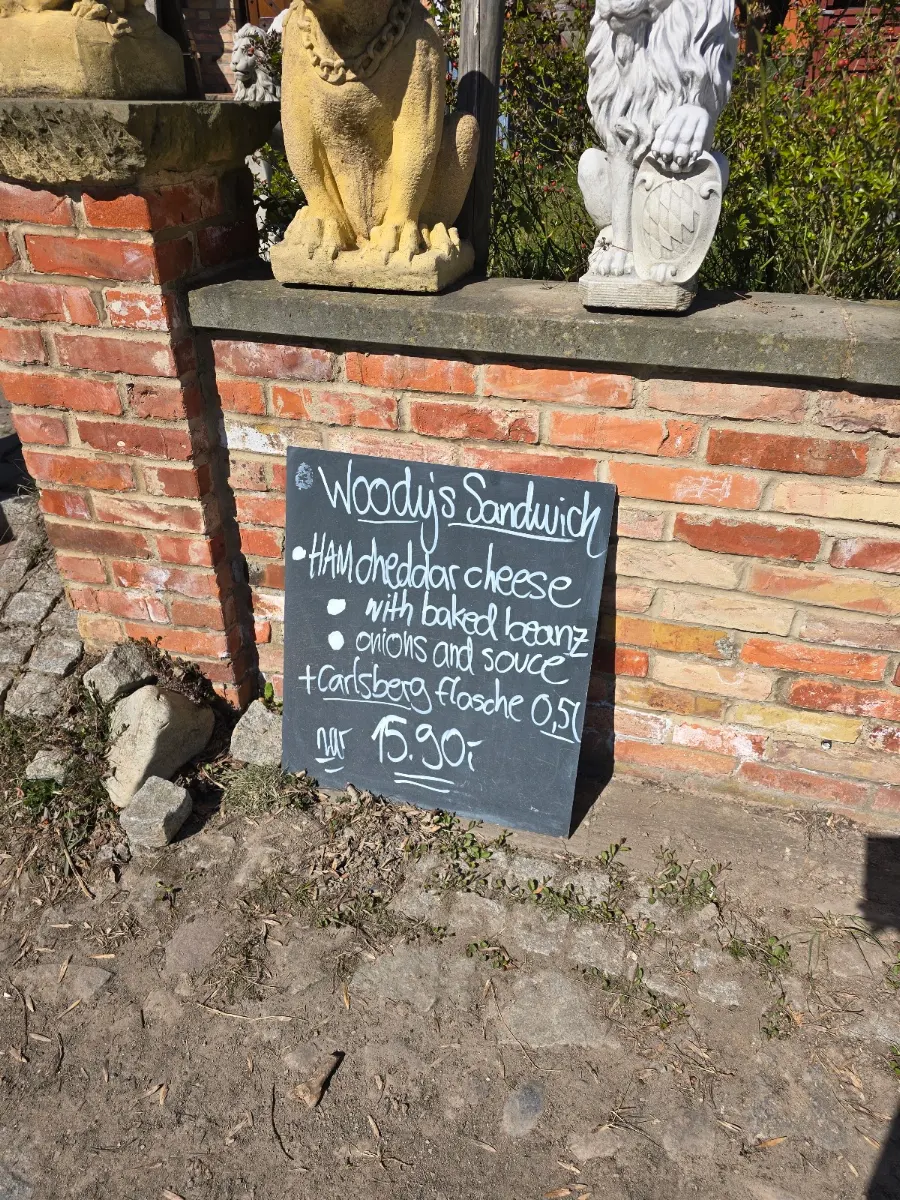 Woody's Sandwich
• HAM cheddar cheese
• with baked beanz
• onions and souce
+ Carlsberg flasche 0,5l
nur 15.90,-